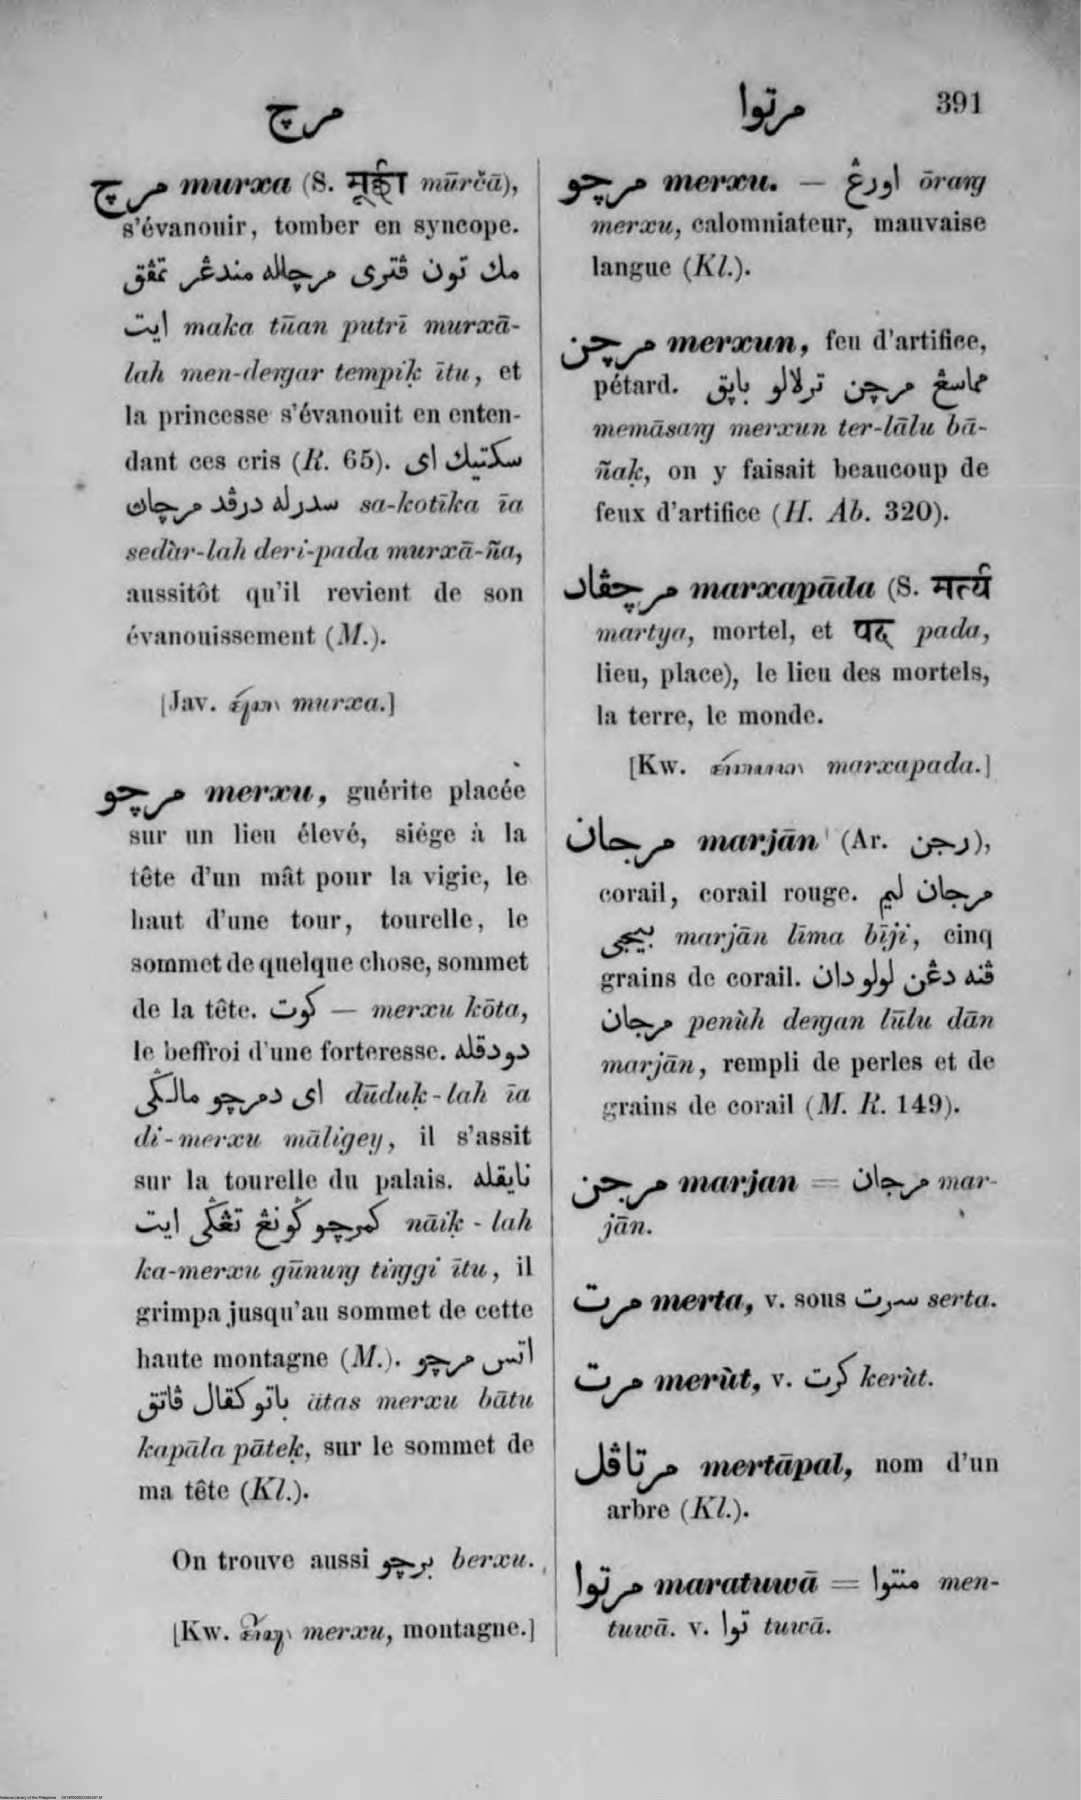 مرچ
مرتوا 391
مرچ murxa (S. मूर्छा mūrčā),
s'évanouir, tomber en syncope.
مك تون ڤتري مرچاله مندڠر تمڤق
ايت maka tūan putrī murxā-
lah men-deŋar tempiḳ ītu, et
la princesse s'évanouit en enten-
dant ces cris (R. 65). سكتيك اي
سدرله درڤد مرچاڽ sa-kotīka īa
sedàr-lah deri-pada murxā-ña,
aussitôt qu'il revient de son
évanouissement (M.).
[Jav. murxa.]
مرچو merxu, guérite placée
sur un lieu élevé, siége à la
tête d'un mât pour la vigie, le
haut d'une tour, tourelle, le
sommet de quelque chose, sommet
de la tête. كوت — merxu kōta,
le beffroi d'une forteresse. دودقله
اي دمرچو مالݢي dūduḳ-lah īa
di-merxu māligey, il s'assit
sur la tourelle du palais. نايقله
كمرچو ݢونڠ تڠݢي ايت nāiḳ-lah
ka-merxu gūnuŋ tiŋgi ītu, il
grimpa jusqu'au sommet de cette
haute montagne (M.). اتس مرچو
باتو كڤال ڤاتق ātas merxu bātu
kapāla pāteḳ, sur le sommet de
ma tête (Kl.).
On trouve aussi برچو berxu.
[Kw. merxu, montagne.]
مرچو merxu. — اورڠ ōraŋ
merxu, calomniateur, mauvaise
langue (Kl.).
مرچن merxun, feu d'artifice,
pétard. مماسڠ مرچن ترلالو باڽق
memāsaŋ merxun ter-lālu bā-
ñaḳ, on y faisait beaucoup de
feux d'artifice (H. Ab. 320).
مرچڤاد marxapāda (S. मर्त्य
martya, mortel, et पद pada,
lieu, place), le lieu des mortels,
la terre, le monde.
[Kw. marxapada.]
مرجان marjān (Ar. رجن),
corail, corail rouge. مرجان ليم
بيجي marjān līma bīji, cinq
grains de corail. ڤنه دڠن لولو دان
مرجان penùh deŋan lūlu dān
marjān, rempli de perles et de
grains de corail (M. R. 149).
مرجن marjan = مرجان mar-
jān.
مرت merta, v. sous سرت serta.
مرت merùt, v. كرت kerùt.
مرتاڤل mertāpal, nom d'un
arbre (Kl.).
مرتوا maratuwā = منتوا men-
tuwā. v. توا tuwā.